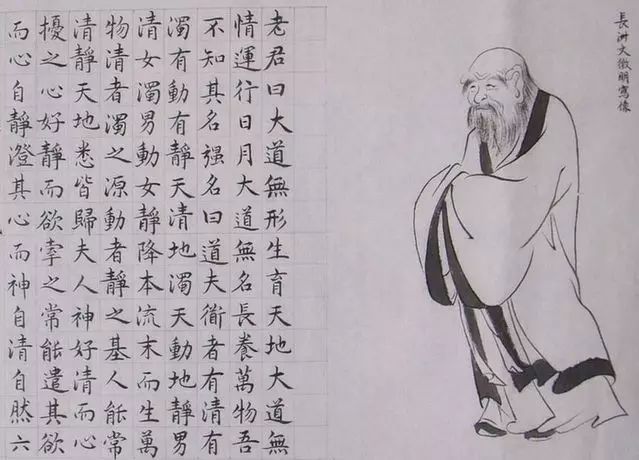 長洲文徵明寫像
老君曰大道無形生育天地大道無
情運行日月大道無名長養萬物吾
不知其名强名曰道夫衜者有清有
濁有動有靜天清地濁天動地靜男
清女濁男動女靜降本流末而生萬
物清者濁之源動者靜之基人能常
清靜天地悉皆歸夫人神好清而心
擾之心好靜而欲牽之常能遣其欲
而心自靜澄其心而神自清自然六